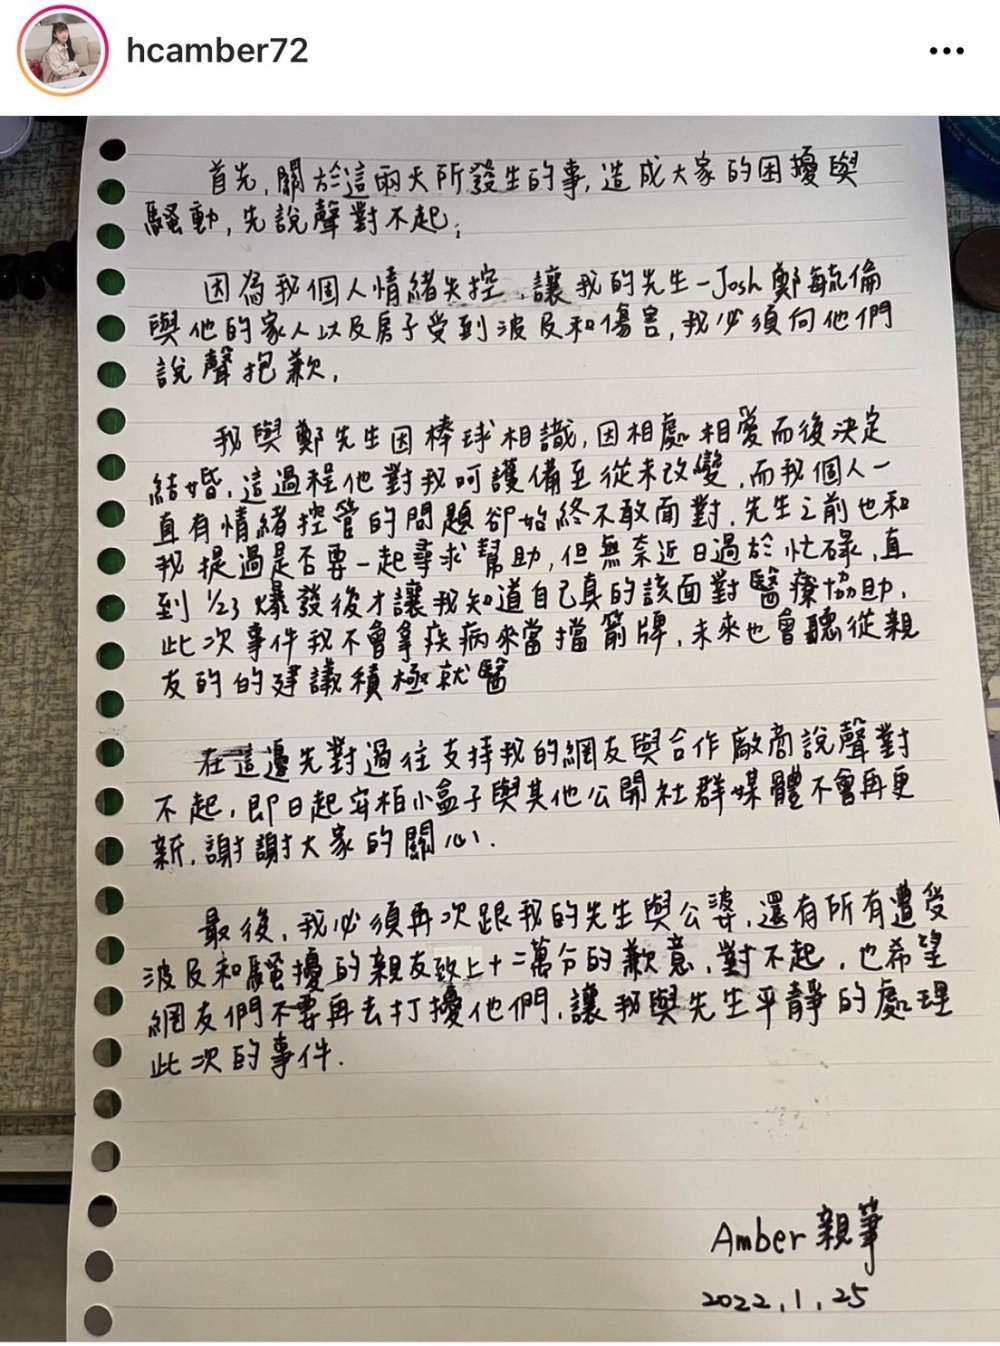 hcamber72
首先,關於這兩天所發生的事,造成大家的困擾與
騷動,先說聲對不起;
因為我個人情緒失控,讓我的先生-Josh鄭毓倫
與他的家人以及房子受到波及和傷害,我必須向他們
說聲抱歉,
我與鄭先生因棒球相識,因相處相愛而後決定
結婚,這過程他對我呵護備至從未改變,而我個人一
直有情緒控管的問題卻始終不敢面對,先生之前也和
我提過是否要一起尋求幫助,但無奈近日過於忙碌,直
到1/23爆發後才讓我知道自己真的該面對醫療協助,
此次事件我不會拿疾病來當擋箭牌,未來也會聽從親
友的的建議積極就醫
在這邊先對過往支持我的網友與合作廠商說聲對
不起,即日起安柏小盒子與其他公開社群媒體不會再更
新,謝謝大家的關心.
最後,我必須再次跟我的先生與公婆,還有所有遭受
波及和騷擾的親友致上十二萬分的歉意,對不起,也希望
網友們不要再去打擾他們,讓我與先生平靜的處理
此次的事件.
Amber 親筆
2022.1.25